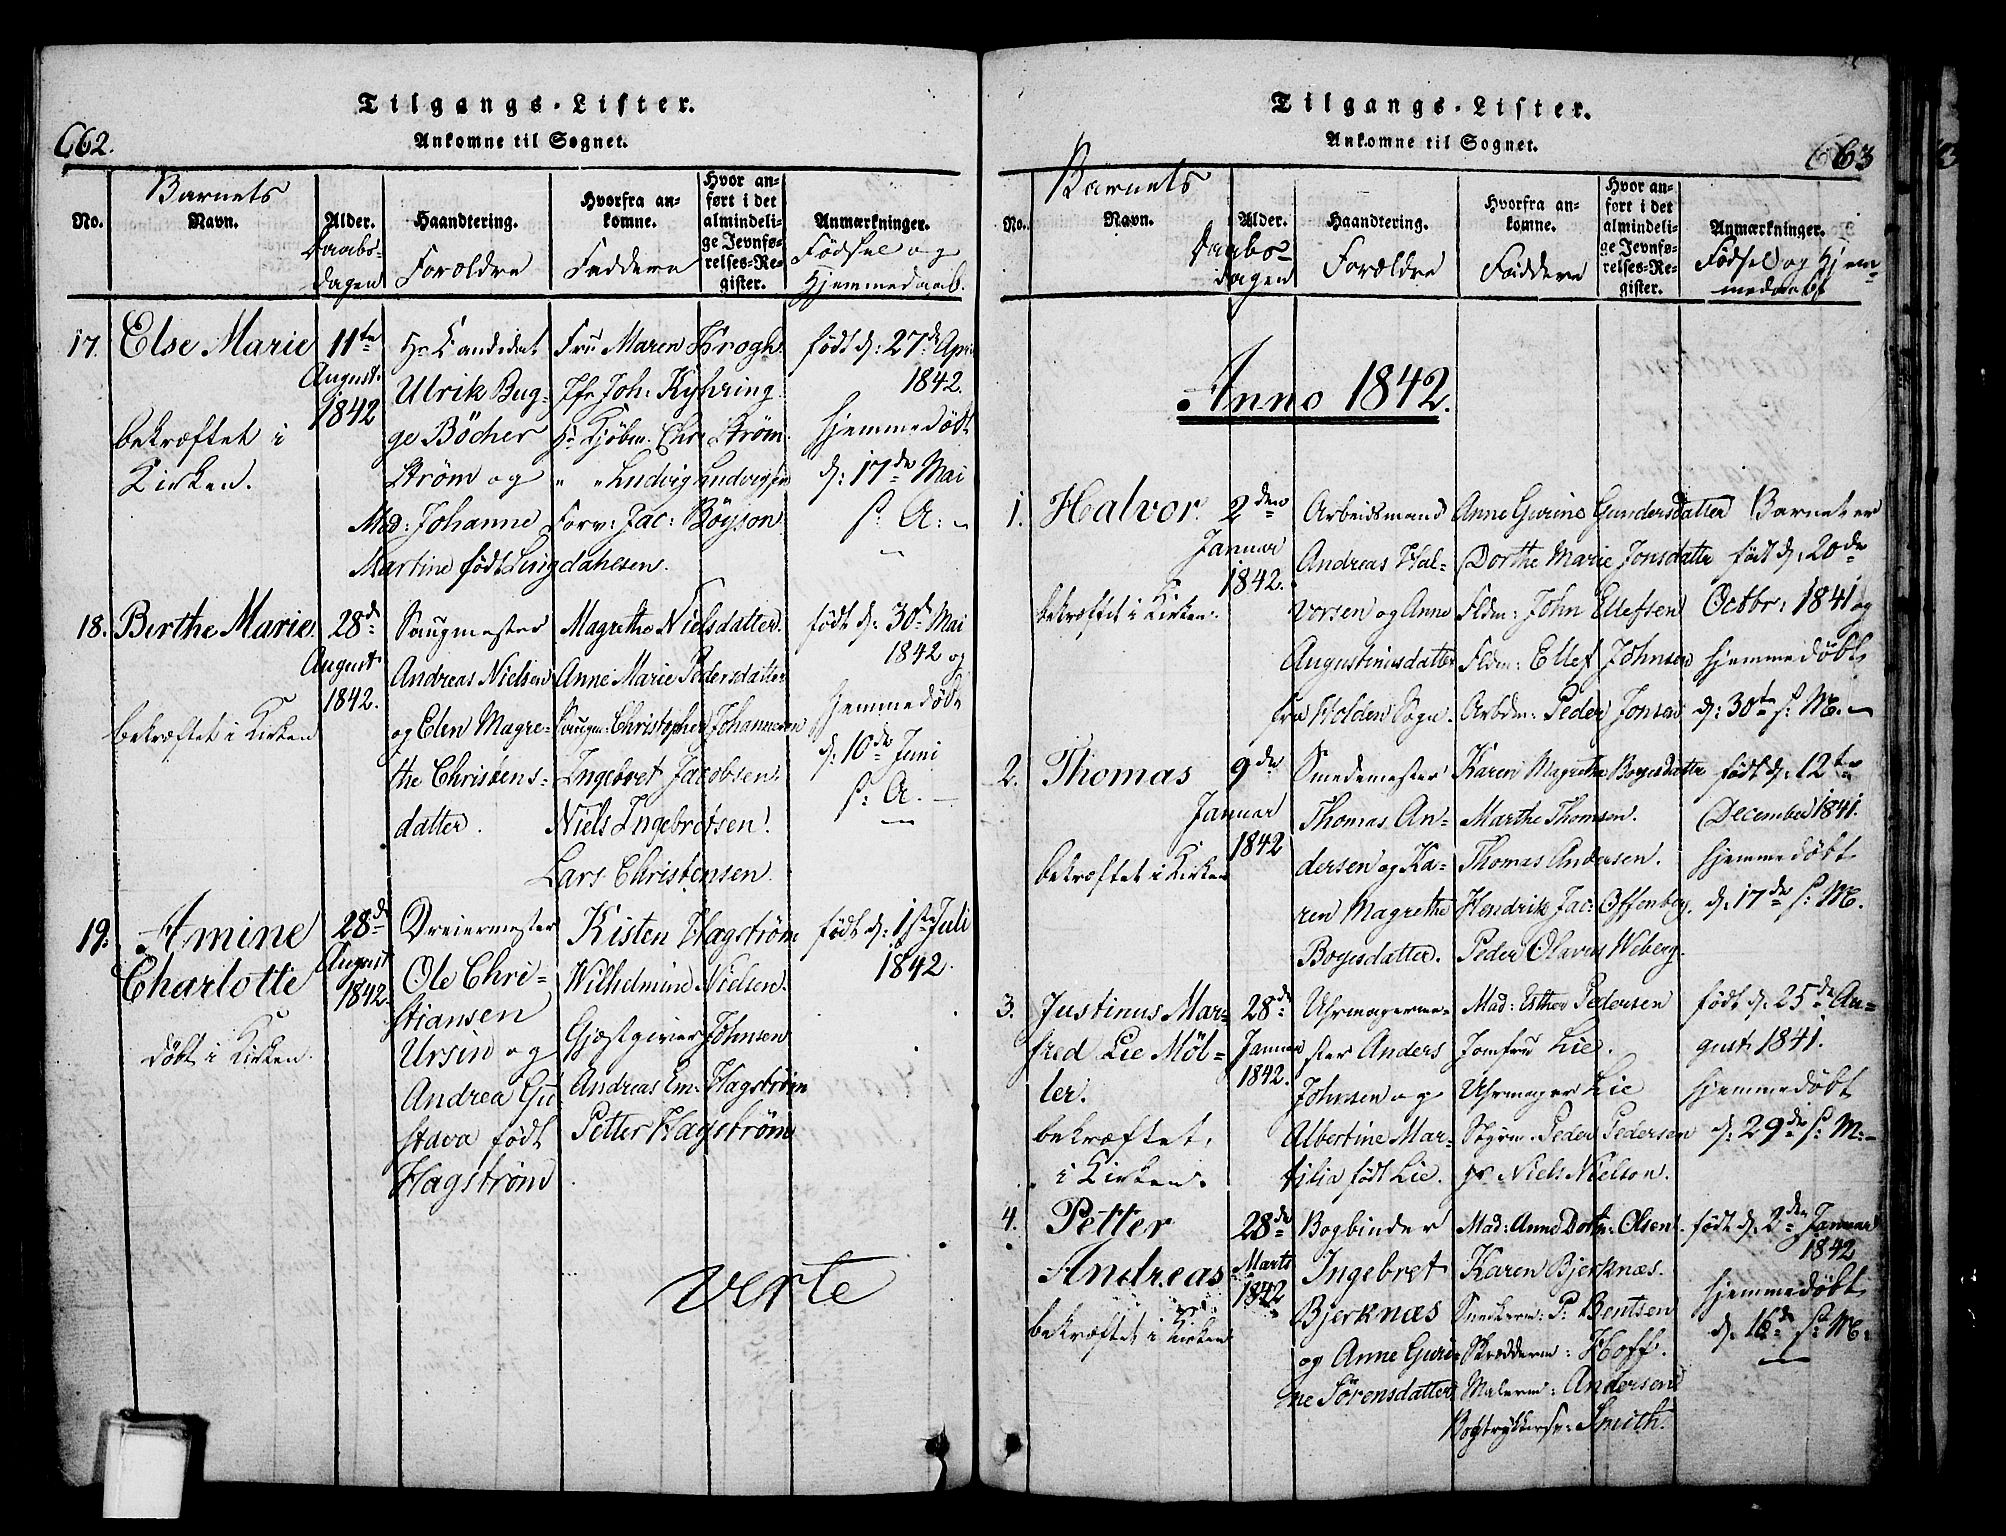 662.
Tilgangs-Lister.
Ankomne til Sognet.
No.
Barnets
Navn.
Alder.
Daabs-
dagen
Haandtering.
Forældre
Hvorfra an-
komne.
Faddere
Hvor an-
ført i det
almindeli-
ge Jevnfø-
relses-Re-
gister.
Anmærkninger.
Fødsel og
Hjemmedaab.
17. Else Marie
bekræftet i
Kirken.
11te
August
1842
Hr Candidat
Ulrik Bug-
ge Böcher
Strøm og
Mad: Johanne
Martine født Lingdahlsen.
Fru Maren Krogh
Jfr Joh: Kyhring
Hr Kjøbm. Chr Strøm.
" " Ludvig Ludvigsen
Forv: Jac: Böyson
født d: 27de April
1842.
hjemmedøbt
d: 17de Mai
s: A:
18. Berthe Marie.
bekræftet i Kirken
28de
August
1842.
Saugmester
Andreas Nielsen
og Elen Magre-
the Christens-
datter.
Magrethe Nielsdatter.
Anne Marie Pedersdatter
Saugm: Christopher Johannesen
Ingebret Jacobsen.
Niels Ingebretsen.
Lars Christensen.
født d: 30de Mai
1842 og
hjemmedøbt
d: 10de Juni
s: A.
19. Amine
Charlotte
døbt i Kirken.
28de
August
1842.
Dreiermester
Ole Chri-
stiansen
Ursin og
Andrea Gu
stava født
Hagstrøm
Kisten Hagstrøm
Wilhelmine Nielsen.
Gjæstgiver Johnsen
Andreas Em: Hagstrøm
Petter Hagstrøm
født d: 1ste Juli
1842.
verte
Tilgangs-Lister.
Ankomne til Sognet.
663
No.
Barnets
Navn.
Alder.
Daabs-
dagen
Haandtering.
Forældre
Hvorfra an-
komne.
Faddere
Hvor an-
ført i det
almindeli-
ge Jevnfø-
relses-Re-
gister.
Anmærkninger.
Fødsel og Hjem-
medaab
Anno 1842.
1. Halvor.
bekræftet i Kirken.
2den
Januar
1842.
Arbeidsmand
Andreas Hal-
vorsen og Anne
Augustinusdatter
fra Holden Sogn.
Anne Gurine Gundersdatter
Dorthe Marie Jonsdatter
Fldm: John Ellefsen
Fldm: Ellef Johnsen
Arbdm: Peder Jonsen
Barnet er
født d: 20de
Octbr: 1841 og
hjemmedøbt
d: 30te s: M.
2. Thomas
bekræftet i Kirken
9de
Januar
1842
Smedemester
Thomas An-
dersen og Ka-
ren Magrethe
Boyesdatter.
Karen Magrethe Boyesdatter
Marthe Thomsen.
Thomas Andersen.
Hendrik Jac: Offenberg.
Peder Olavus Weberg.
født d: 12te
December 1841.
hjemmedøbt
d. 17de s: M.
3. Justinus Mar-
fred Lie Møl-
ler.
bekræftet
i Kirken.
28de
Januar
1842.
Uhrmagerme-
ster Anders
Johnsen og
Albertine Mar-
tilia født Lie.
Mad: Esther Pedersen
Jomfru Lie.
Uhrmager Lie
Styrm: Peder Pedersen
Hr Niels Nielson.
født d: 25de Au-
gust 1841.
hjemmedøbt
d: 29de s: M:
4. Petter
Andreas
bekræftet i Kirken
28de
Marts
1842
Bogbinder
Ingebret
Bjerknæs
og Anne Guri-
ne Sörensdatter
Mad: Anne Dorth: Olsen.
Karen Bjerknæs.
Snedkerm: P: Bentsen
Skrædderm: Hoff.
Malerm: Andersen
Bogtrykkersv: Smith.
født d: 2den Januar
1842
hjemmedøbt
d. 16de s: M: